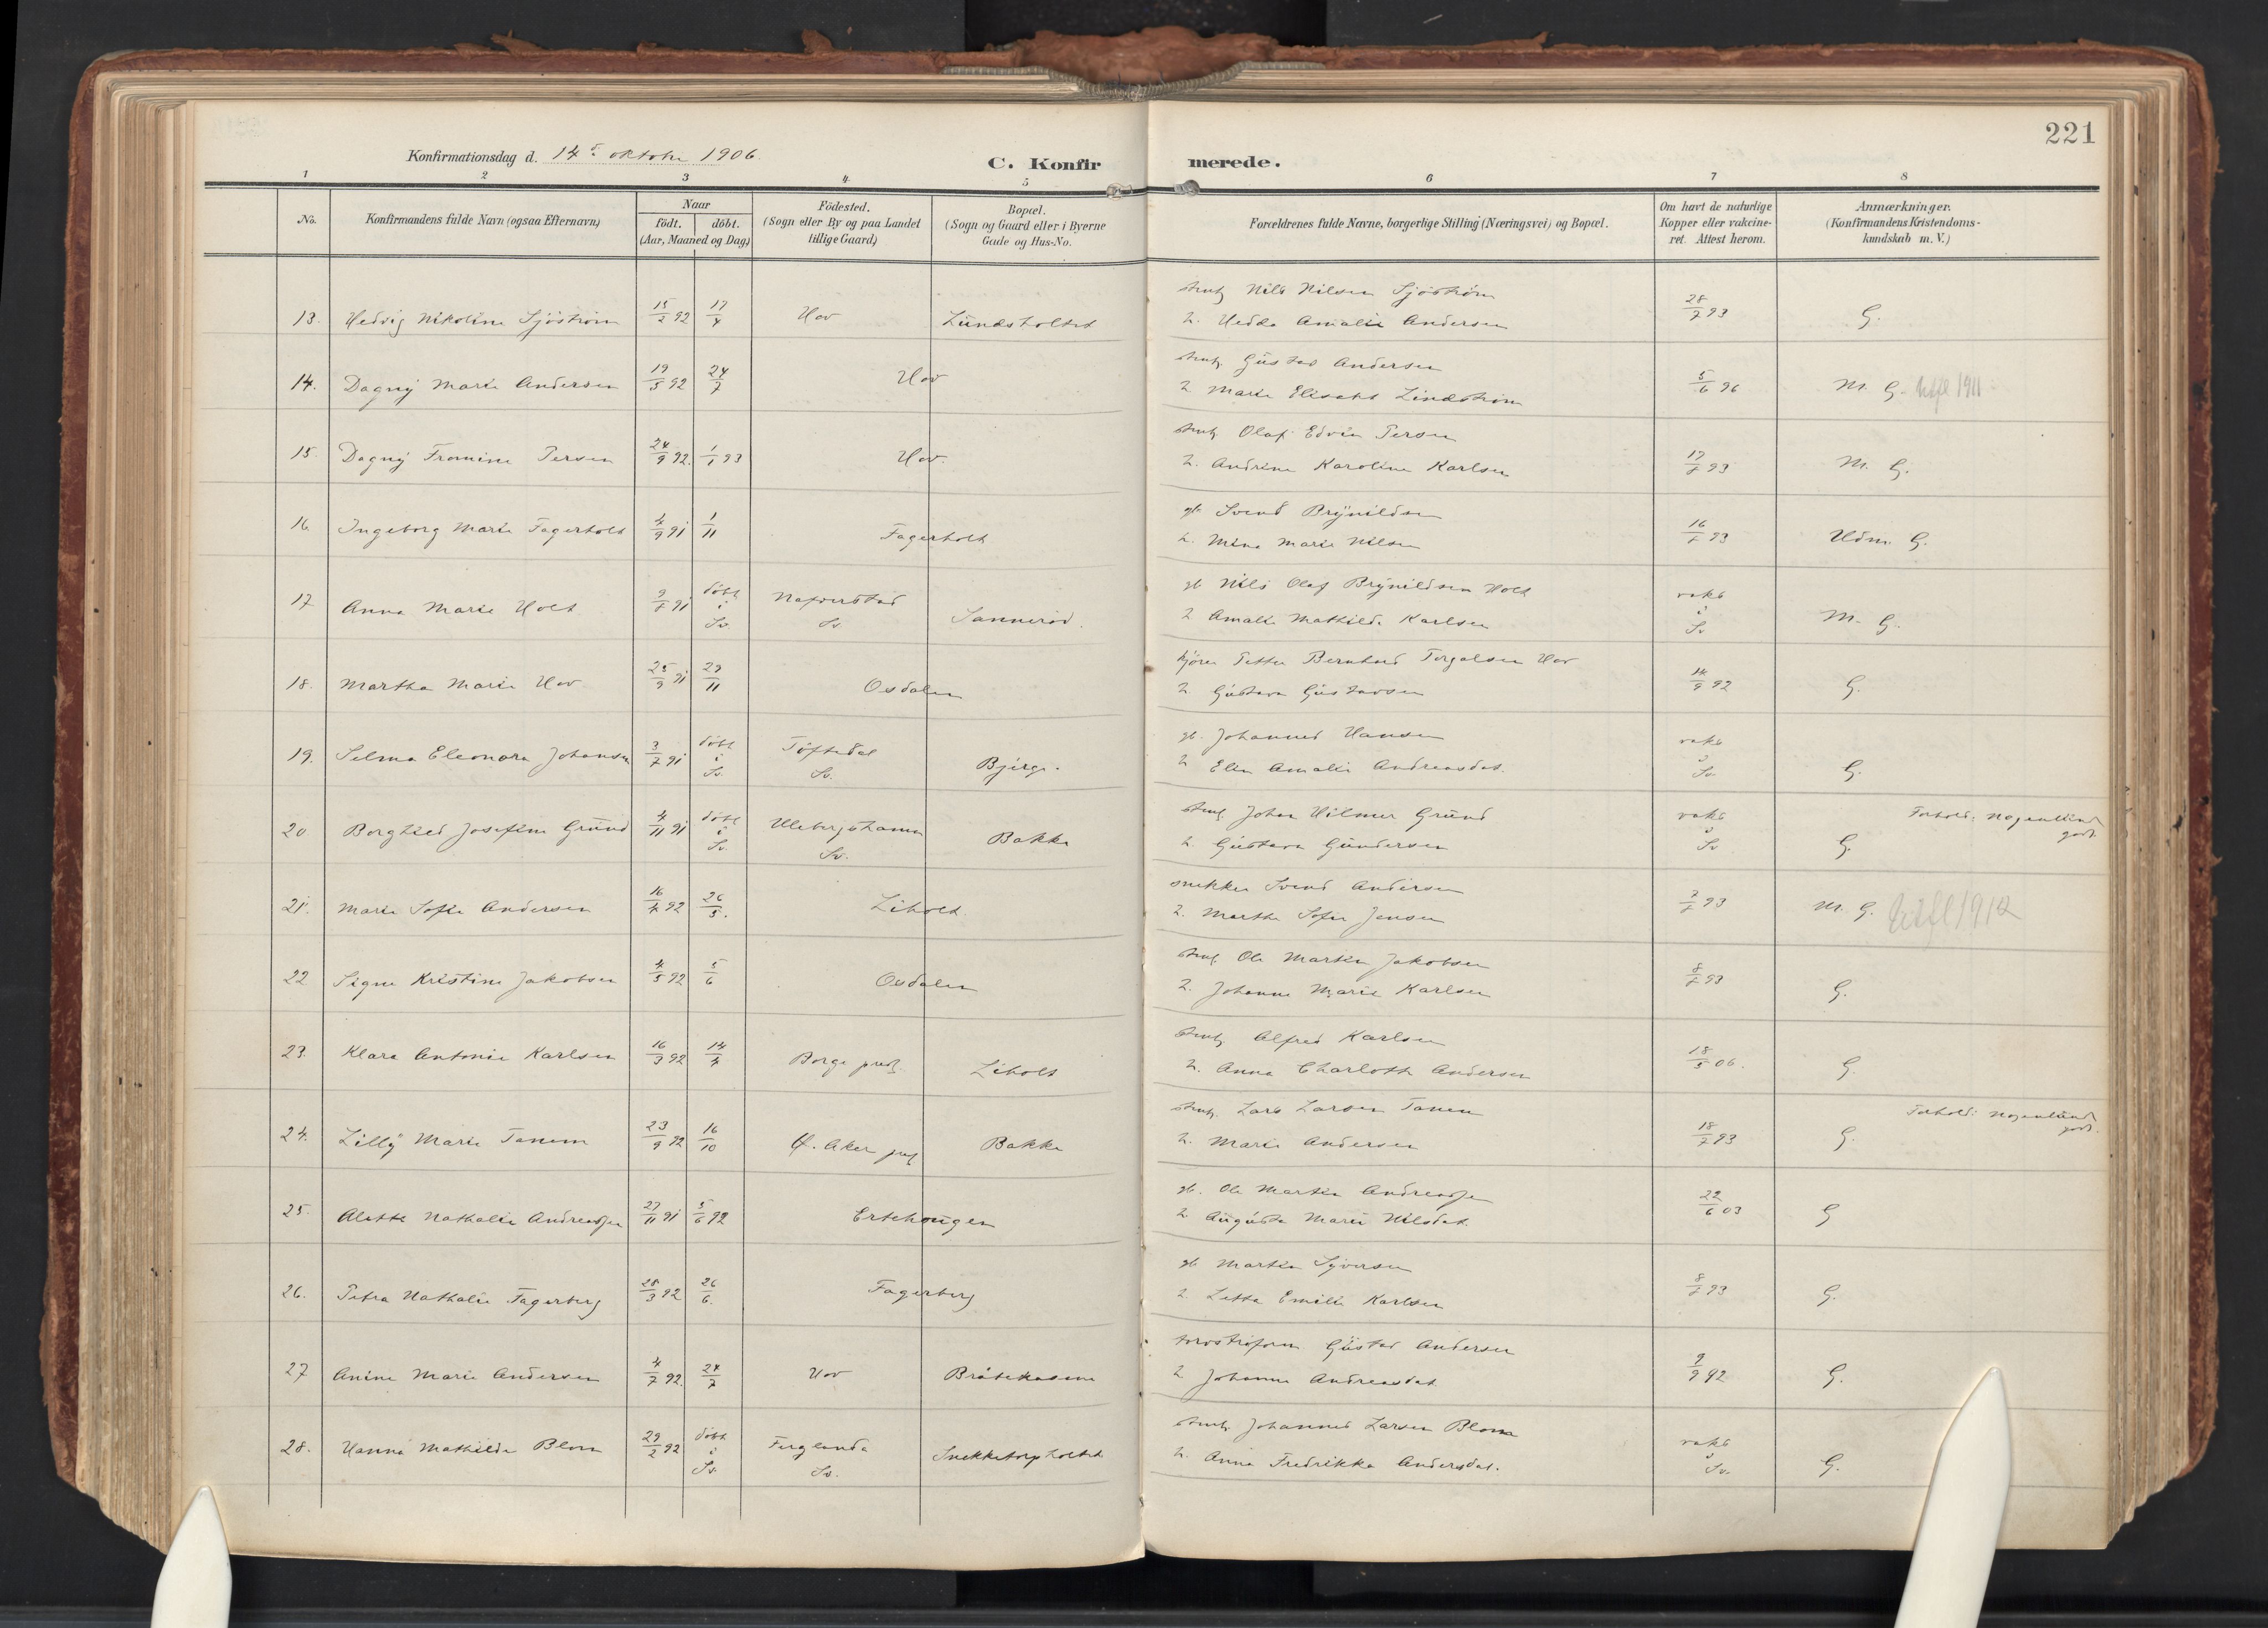 221
Konfirmationsdag d. 14de oktober 1906.
C. Konfirmerede.
1 2 3 4 5 6 7 8
No.
Konfirmandens fulde Navn (ogsaa Efternavn)
Naar
födt. döbt.
(Aar, Maaned og Dag)
Födested.
(Sogn eller By og paa Landet
tillige Gaard)
Bopæl.
(Sogn og Gaard eller i Byerne
Gade og Hus-No.
Forældrenes fulde Navne, borgerlige Stilling (Næringsvei) og Bopæl.
Om havt de naturlige
Kopper eller vakcine-
ret. Attest herom.
Anmærkninger.
(Konfirmandens Kristendoms-
kundskab m. V.)
13. Hedvig Nikoline Sjöström 15/2 92 17/4 Hov Lundsholtet
Nils Nilsen Sjöström
h. Hedda Amalie Andersen 28/7 93 G.
14. Dagny Marie Andersen 19/5 92 24/7 Hov
Gustav Andersen
h. Marie Elisabet Lindström 5/6 96 M. G. 1911
15. Dagny Fromine Persen 24/9 92. 1/1 93 Hov.
Olaf Edvin Persen
h. Andrine Karoline Karlsen 17/7 93 M. G.
16. Ingeborg Marie Fagerholt 4/9 91 1/11 Fagerholt
gb. Svend Brynildsen
h. Mina Marie Nilsen 16/7 93 Udm. G.
17 Anna Marie Holt 9/7 91 döbt i Sv. Naverstad Sv. Sannerød.
gb Nils Olaf Brynildsen Holt
h. Amalie Mathilde Karlsen vaks i Sv M. G.
18. Martha Marie Hov 25/9 91 29/11 Osdalen
Petter Bernhard Torgalsen Hov
h. Gustava Gustavsen 14/9 92 G.
19. Selma Eleonora Johansen 3/7 91 döbt i Sv. Töftedal Sv. Bjerge.
gb. Johannes Hansen
h. Elin Amalie Andreasdat. vaks i Sv. G.
20 Borghild Josefine Grund 4/11 91 döbt i Sv. Ulebergshamn Sv. Bakke
Johan Hilmer Grund
h. Gustava Gundersen vaks i Sv G. Forhold: Nogenlunde godt.
21. Marie Sofie Andersen 16/4 92 26/5. Liholt
snekker Svend Andersen
h. Marthe Sofie Jensen 7/7 93 M. G. 1912
22 Signe Kristine Jakobsen 4/5 92 5/6 Osdalen
Ole Martin Jakobsen
h. Johanne Marie Karlsen 8/7 93 G.
23. Klara Antonie Karlsen 16/3 92 14/4 Borge præstg. Liholt
Alfred Karlsen
h. Anna Charlotte Andersen 18/5 06. G.
24. Lilly Marie Tanem 23/9 92 16/10 Ø. Aker Bakke
Lars Larsen Tanem
h. Marie Andersen 18/7 93 G. Forhold: Nogenlunde godt.
25. Alette Nathalie Andreassen 27/11 91 5/6 92 Ertehougen
gb. Ole Martin Andreassen
h. Augusta Marie Nilsdat. 22/6 03 G
26. Petra Nathalie Fagerberg 28/3 92 26/6. Fagerberg
gb Martin Syversen
h. Letta Emilie Karlsen 8/7 93 G.
27 Anine Marie Andersen 4/7 92. 24/7 Hov Bråtekasene
Gustav Andersen
h Johanne Andreasdat 9/9 92 G.
28. Hanna Mathilde Blom 29/2 92 döbt i Sv. Ferglanda Sv. Snekketorpholtet
Johannes Larsen Blom
h. Anna Fredrikke Andersdat. vaks i Sv. G.